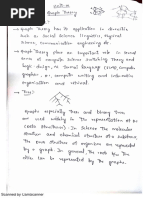 Unit-II
Graph Theory
Graph theory has its application in diversible
such as Social Science, linguistics, physical
science, communication engineering etc.
Graph theory plays an important role in several
areas of computer science switching theory and
logic design, formal languages, computer
graphics, computer writing and information
organisation and retrieval.
Tree:
Graphs especially Trees and binary Trees
are used widely in the representation of
(data structures). In Science the molecular
structure and chemical structure of a substance.
The DNA structure of an organism are represented
by a graph. In general, the
can be represented by the graphs.
Scanned by CamScanner